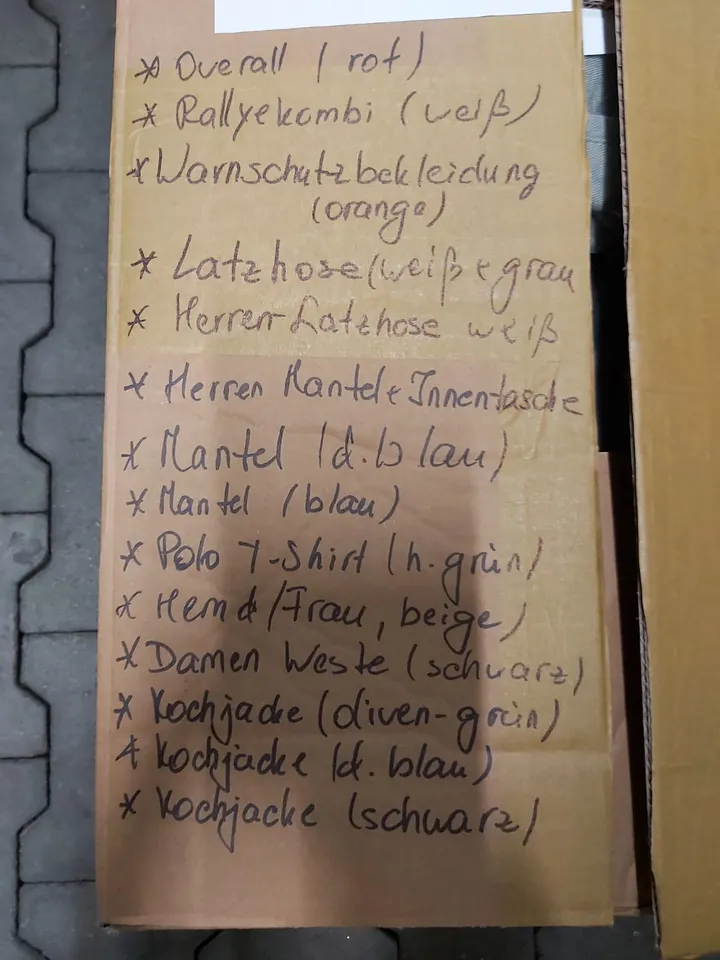 * Overall (rot)
* Rallyekombi (weiß)
* Warnschutzbekleidung
(orange)
* Latzhose (weiß + grau
* Herren-Latzhose weiß
* Herren Mantel + Innentasche
* Mantel (d. blau)
* Mantel (blau)
* Polo T-Shirt (h. grün)
* Hemd (Frau, beige)
* Damen Weste (schwarz)
* Kochjacke (oliven-grün)
* Kochjacke (d. blau)
* Kochjacke (schwarz)